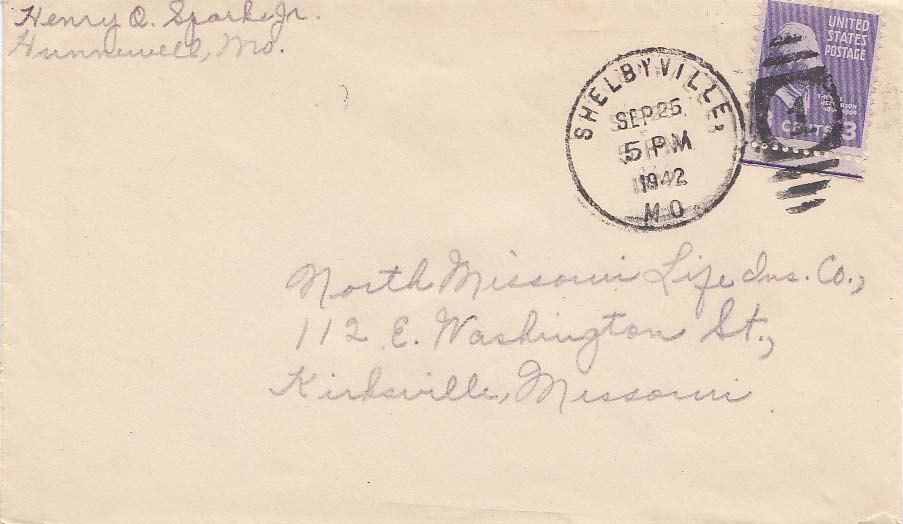 Henry Q. Sparks Jr.
Hunnewell, Mo.
SHELBYVILLE,
SEP 25
5 PM
1942
MO.
1
UNITED
STATES
POSTAGE
CENTS 3
North Missouri Life Ins. Co.,
112 E. Washington St.,
Kirksville, Missouri